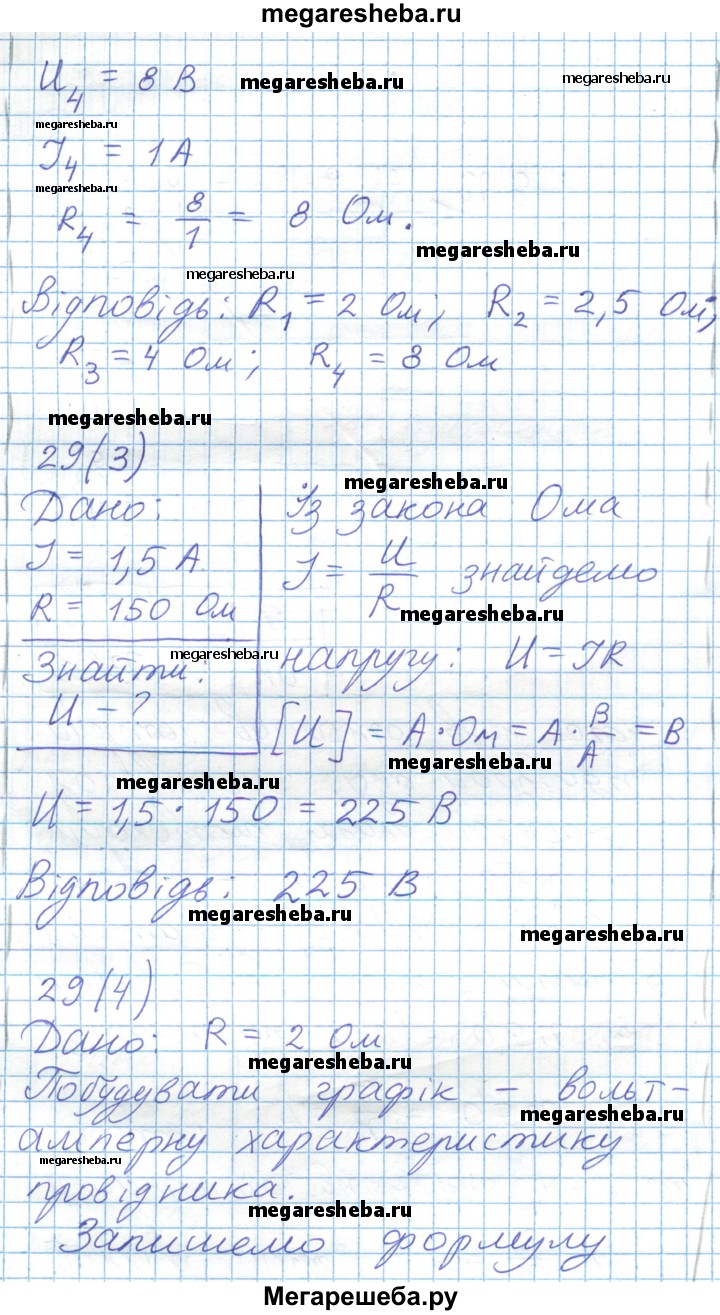 megaresheba.ru
U₄ = 8 В megaresheba.ru megaresheba.ru
megaresheba.ru
I₄ = 1 А
megaresheba.ru
R₄ = 8/1 = 8 Ом.
megaresheba.ru
megaresheba.ru
Відповідь: R₁ = 2 Ом; R₂ = 2,5 Ом;
R₃ = 4 Ом; R₄ = 8 Ом
megaresheba.ru
29(3)
megaresheba.ru
Дано: Із закона Ома
I = 1,5 А I = U/R знайдемо
R = 150 Ом megaresheba.ru
Знайти: megaresheba.ru напругу: U = IR
U - ? [U] = А · Ом = А · В/А = В
megaresheba.ru
megaresheba.ru
U = 1,5 · 150 = 225 В
Відповідь: 225 В
megaresheba.ru
megaresheba.ru
29(4)
Дано: R = 2 Ом
megaresheba.ru
Побудувати графік - вольт-
megaresheba.ru
амперну характеристику
megaresheba.ru
провідника.
megaresheba.ru
Запишемо формулу
Мегарешеба.ру